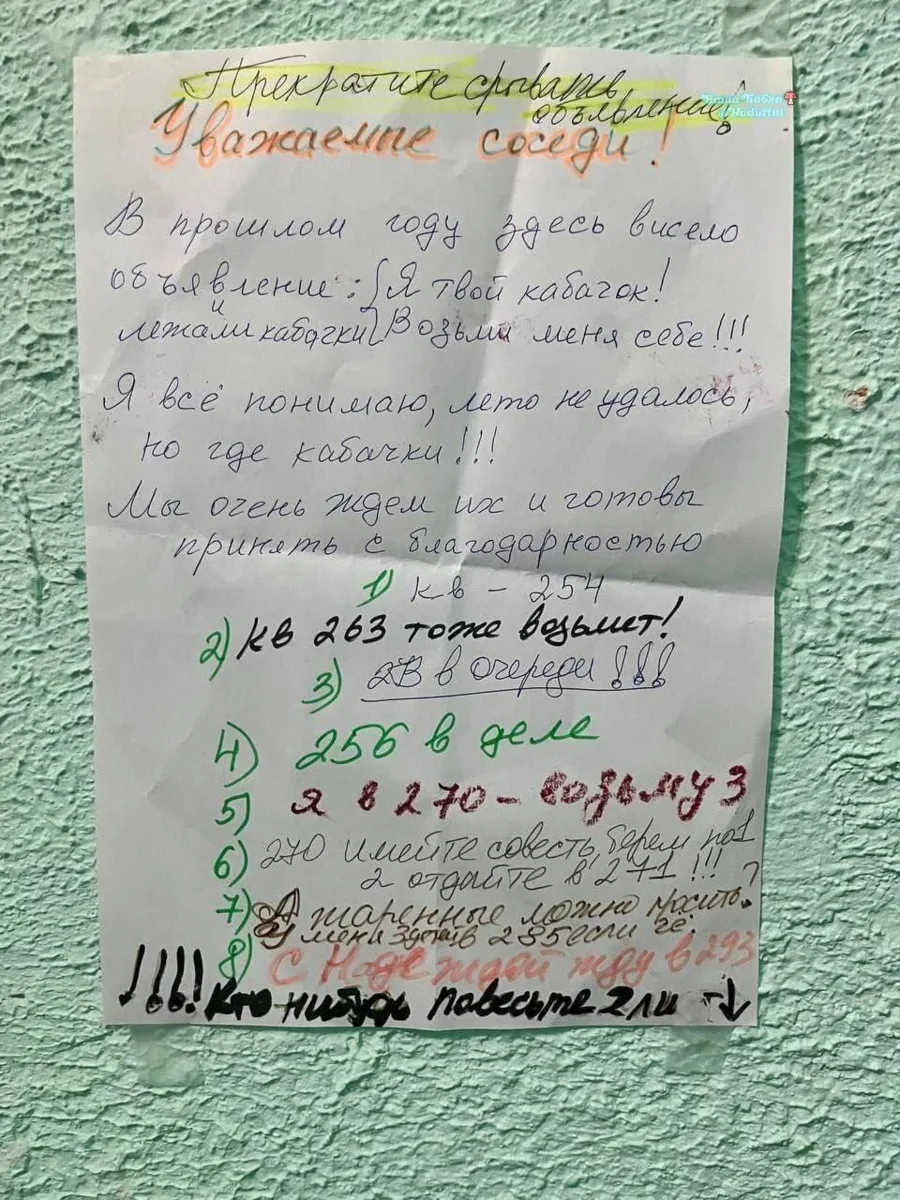 Прекратите срывать
объявление!
Уважаемые соседи!
В прошлом году здесь висело
объявление: Я твой кабачок!
и
лежали кабачки Возьми меня себе!!!
Я всё понимаю, лето не удалось,
но где кабачки!!!
Мы очень ждем их и готовы
принять с благодарностью
1) кв - 254
2) кв 263 тоже возьмет!
3) в очереди!!!
4) 256 в деле
5) Я в 270 - возьму 3
6) 270 имейте совесть, берем по 1
2 отдайте в 271!!!
7) А жаренные можно носить?
У меня 295 если чё.
8) С Надеждой жду в 293
!!!! Кто нибудь повесьте 2 ли